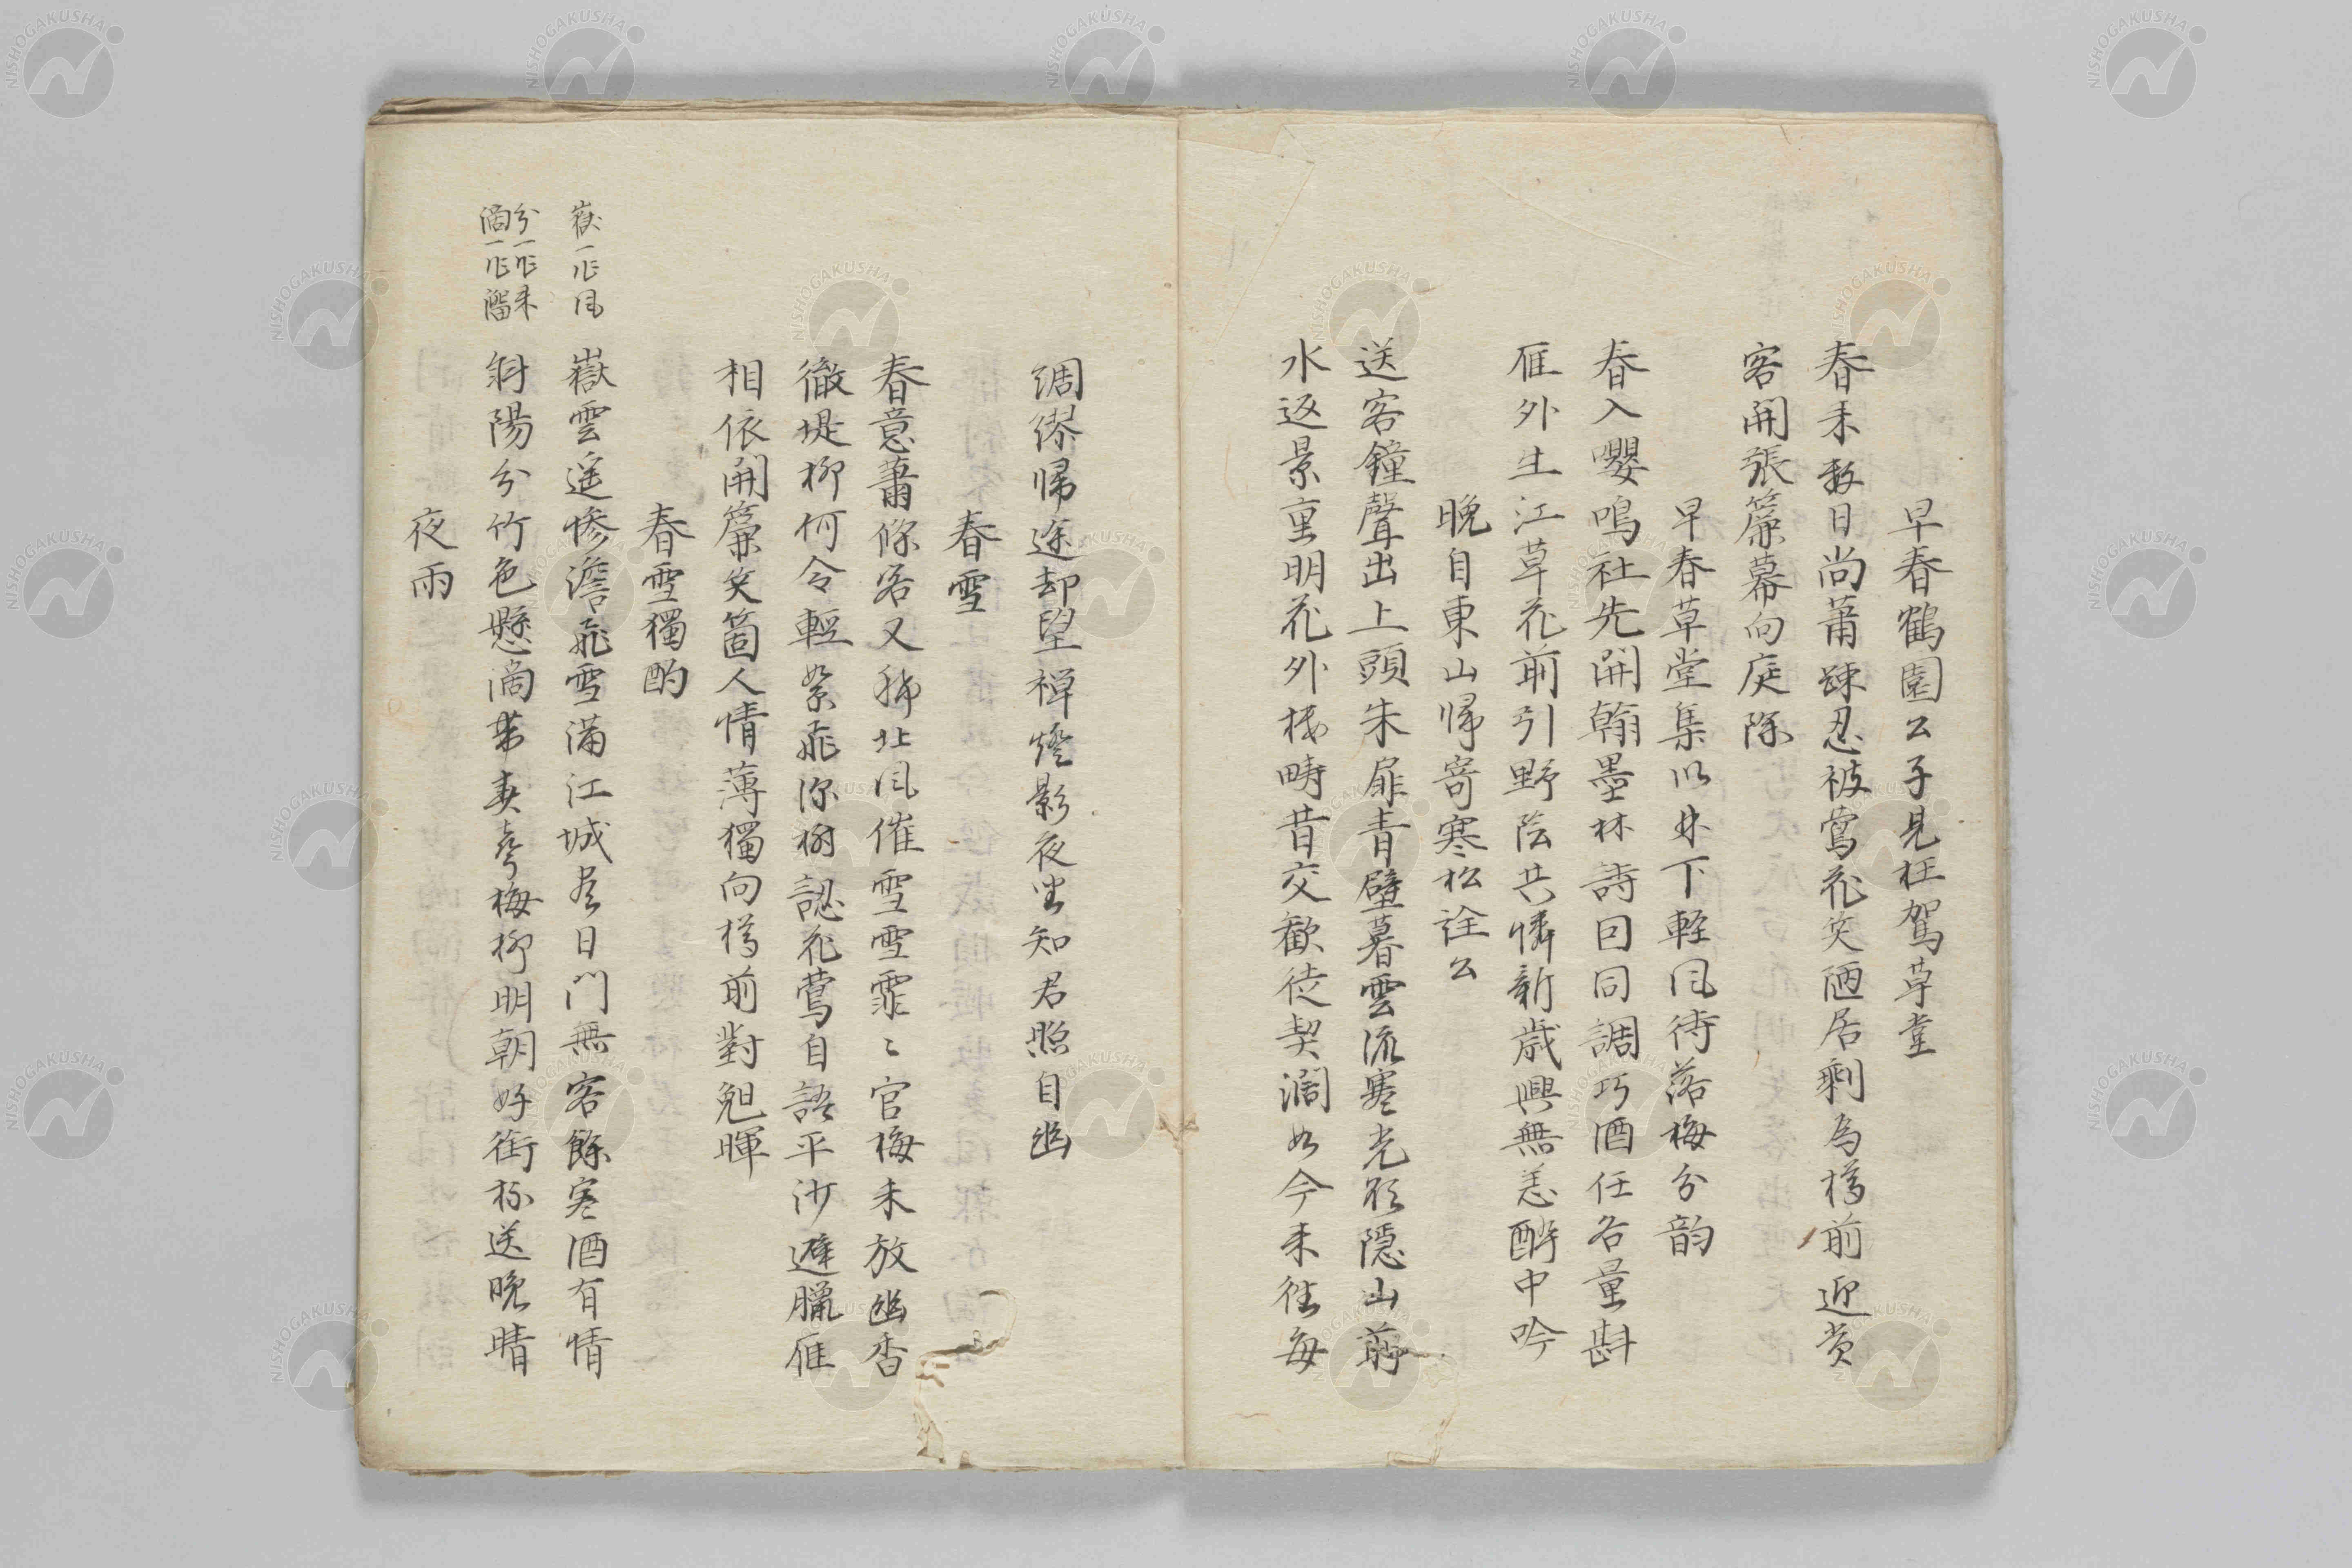 早春鶴園公子見枉駕草堂
春来数日尚蕭疎忍被鶯花笑陋居剰為樽前迎賞
客開張簾幕向庭除
早春草堂集以林下軽风待落梅分韵
春入嚶鳴社先開翰墨林詩囙同調巧酒任各量斟
雁外生江草花前引野陰共憐新歳興無恙酔中吟
晩自東山帰寄寒松詮公
送客鐘聲出上頭朱扉青壁暮雲流寒光欲隠山前
水返景重明花外楼疇昔交歓徒契濶如今来往每
綢繆帰途却望禅燈影夜坐知君照自幽
春雪
春意蕭條客又稀北风催雪雪霏〻官梅未放幽香
徹堤柳何令輕絮飛深樹認花鶯自語平沙避臘雁
相依開簾笑箇人情薄獨向樽前對皃暉
春雪獨酌
嶽一作风
嶽雲遥惨澹飛雪満江城尽日門無客餘寒酒有情
分一作来
滴一作溜
斜陽分竹色懸滴帯禽聲梅柳明朝好銜杯送晩晴
夜雨
NISHOGAKUSHA